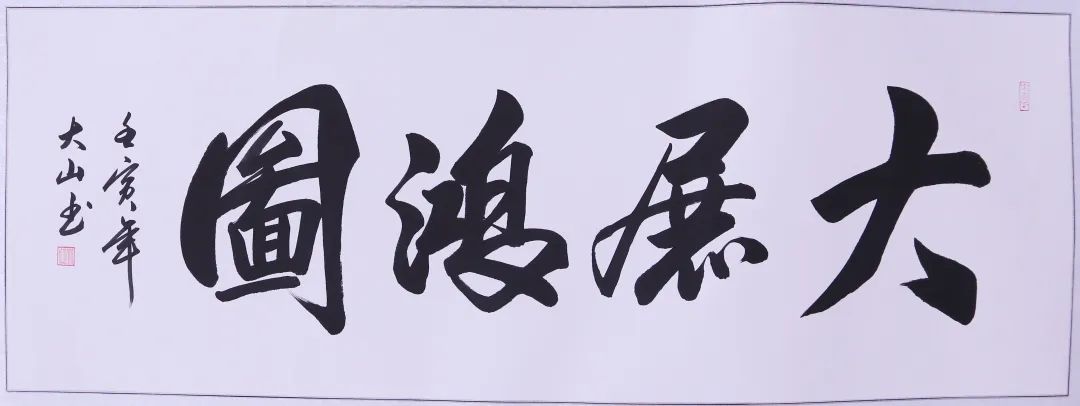 大展鴻圖
壬寅年
大山书